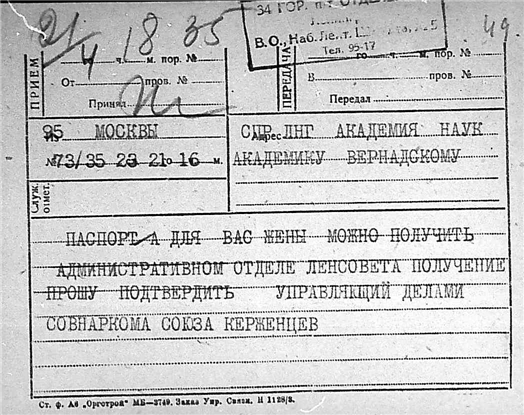 34 ГОР. П-Т ОТДЕЛ
В.О., Наб. Лейт. 5
Тел. 95-17
21/4 18 35
49.
ПРИЕМ
ч. м. пор. №
От пров. №
Принял
ПЕРЕДАЧА
го ч. м. пор. №
В пров. №
Передал
Из 95 МОСКВЫ
№ 73/35 23 21 о 16 м.
Адрес СПР ЛНГ АКАДЕМИЯ НАУК
АКАДЕМИКУ ВЕРНАДСКОМУ
Служ. отмет.
ПАСПОРТ А ДЛЯ ВАС ЖЕНЫ МОЖНО ПОЛУЧИТЬ
АДМИНИСТРАТИВНОМ ОТДЕЛЕ ЛЕНСОВЕТА ПОЛУЧЕНИЕ
ПРОШУ ПОДТВЕРДИТЬ УПРАВЛЯЮЩИЙ ДЕЛАМИ
СОВНАРКОМА СОЮЗА КЕРЖЕНЦЕВ
Ст. ф. А6 „Оргстрой" МБ—3749. Заказ Упр. Связи. Н 1128/3.